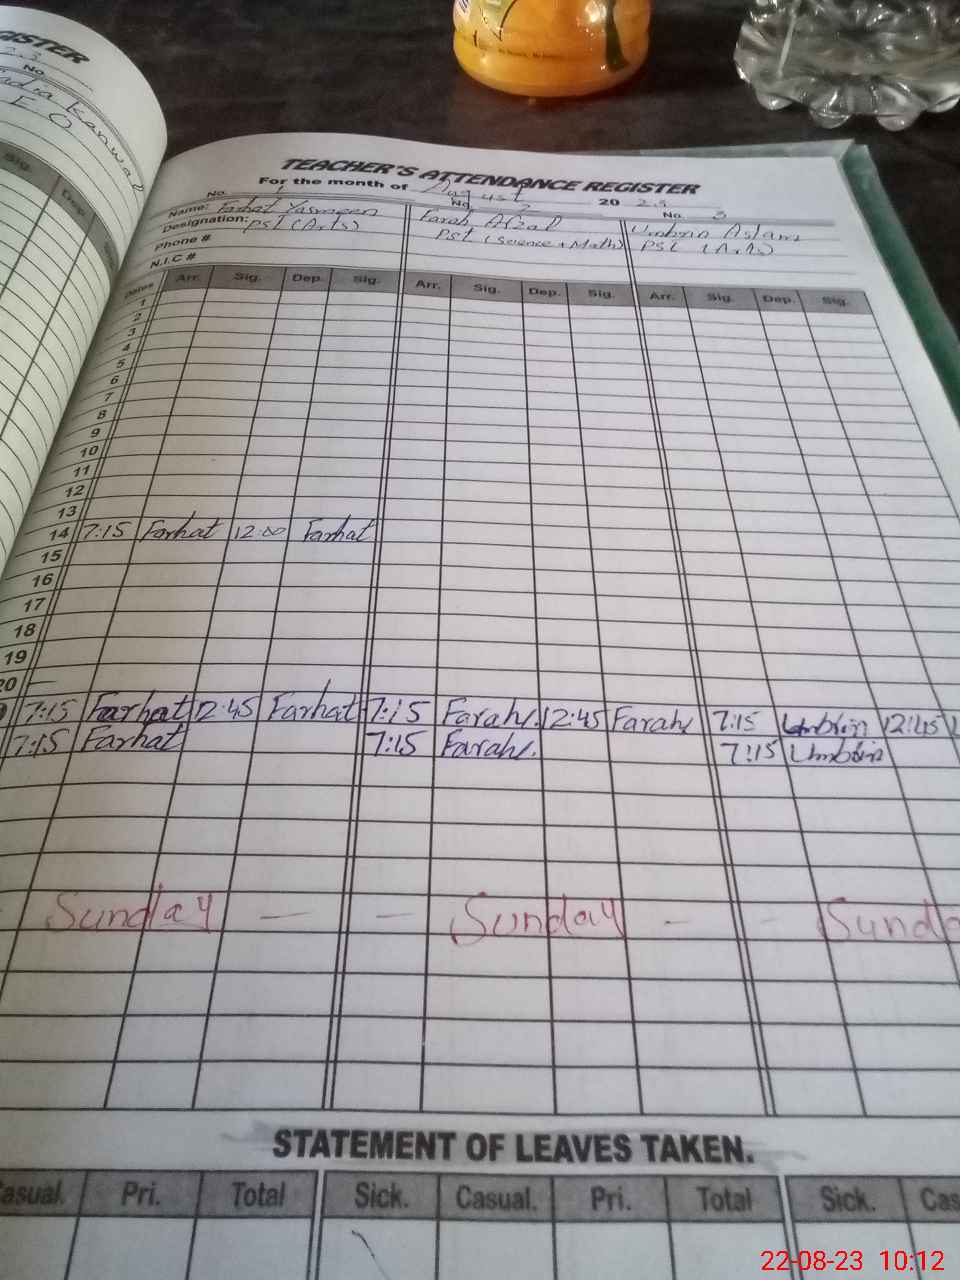 GISTER
No.
Kanwal
Sig.
Dep.
TEACHER'S ATTENDANCE REGISTER
For the month of August 20 23
No. 1 No. 2 No. 3
Name: Farhat Yasmeen Farah Afzal Umbrin Aslam
Designation: PST (Arts) PST (Science + Math) PST (Arts)
Phone #
N.I.C #
Dates Arr. Sig. Dep. Sig. Arr. Sig. Dep. Sig. Arr. Sig. Dep. Sig.
1
2
3
4
5
6
7
8
9
10
11
12
13
14 7:15 Farhat 12:00 Farhat
15
16
17
18
19
20 —
7:15 Farhat 12:45 Farhat 7:15 Farah 12:45 Farah 7:15 Umbrin 12:45
7:15 Farhat 7:15 Farah 7:15 Umbrin
Sunday — — Sunday — — Sunda
STATEMENT OF LEAVES TAKEN.
Casual. Pri. Total Sick. Casual. Pri. Total Sick. Cas
22-08-23 10:12